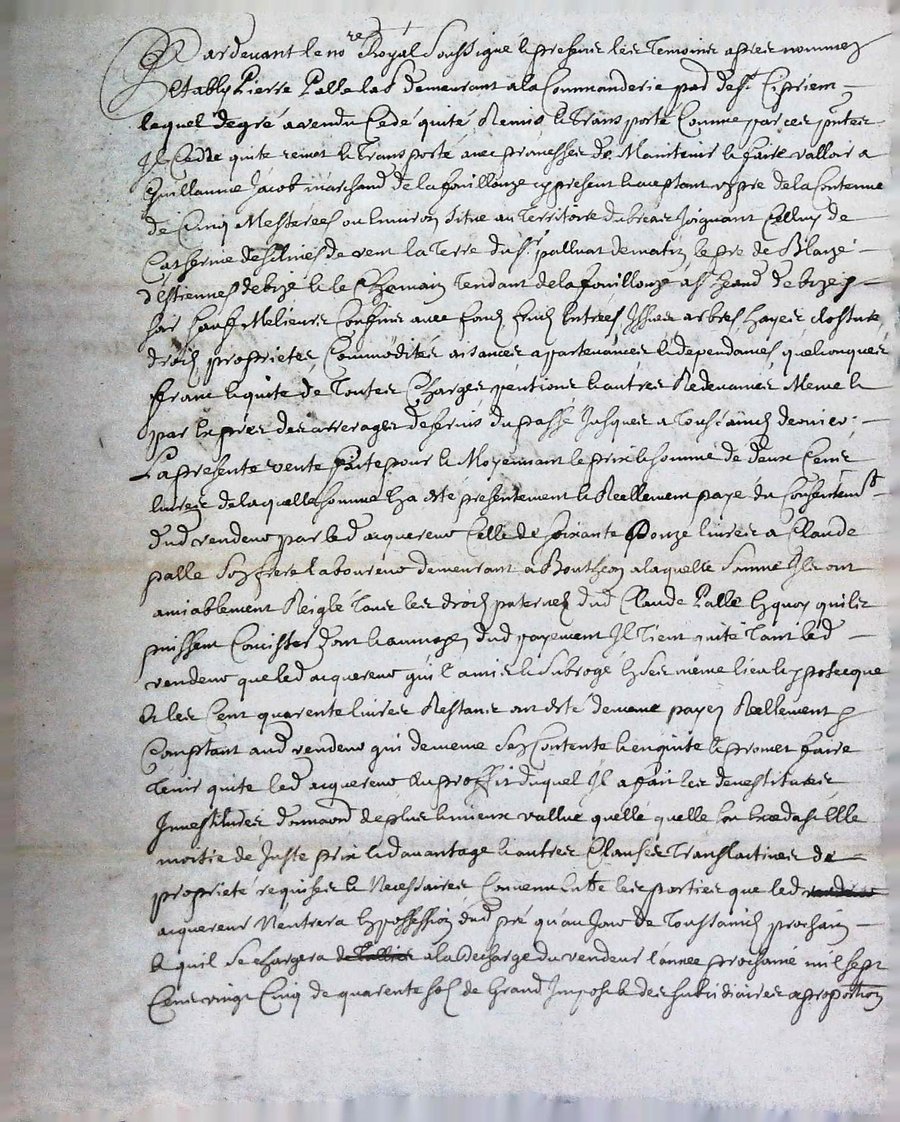 Pardevant le no.re Royal Soussigné et presens les Temoins apres nommez
Estably Pierre Palle lab. demeurant a la Commanderie par. de St. Cipriem
lequel de gré a vendu Cedé quité Remis et Transporté Comme par ces pntes
Il Cedde quite remet et Transporte avec promesses de Maintenir et faire valloir a
Guillaume Jacob marchand de la fouillouze cy present et aceptant un pre de la Contenue
de Cinq Mesterées ou Environ Situé au Territoire du Joignant Celluy de
Catherine de vent la Terre du Sr. palluat de matin le pre de Blaize
d'Estiennes de bize et le Chemain Tendant de la fouillouze a St. heand de bize
Sur Sauf Melieurs Confins avec fond fruits Entrées Issues arbres hayes Closture
droits proprietes Commodités aisances apartenances et dependances quelconques
franc et quite de Toutes Charges pentions et autres Redevances Meme et
par Exprès des arrerages de servis du passé Jusques a Toussaincts dernier
La presente vente faite pour et Moyennant le prix et somme de deux Cens
livres de laquelle somme En a esté presentement et Reellement payé du Consentemt
dud vendeur par led acquereur Celle de soixante livres a Claude
palle Son frere laboureur demeurant a Boutheon a laquelle Somme Ils ont
amiablement Reiglé Tous les droits paternels dud Claude Palle En quoy qu'ils
puissent Concister dont et au moyen dud payement Il Tient quite Tant led
vendeur que led acquereur qu'il a mis et Subrogé En Ses meme lieu et ypotecque
Et les Cent quarente livres Restans ont esté de meme payez Reellement
Comptant aud vendeur qui de meme Sen Contente et en quite et promet faire
Tenir quite led acquereur Au proffit duquel Il a fait les devestitures
Investitures donnaon de plus et mieux vallue quelle quelle Soit
moitie de Juste prix et davantage et autres Clauses Translatives de
proprieté requises et Necessaires Convenu Entre les parties que led vendeur
acquereur N'entrera En possession dud pré qu'au Jour de Toussainctz prochain
et quil Se chargera de a la decharge du vendeur l'année prochaine mil sept
Cens vingt Cinq de quarente sols de Grand Impost et des subsidiaires a proportion